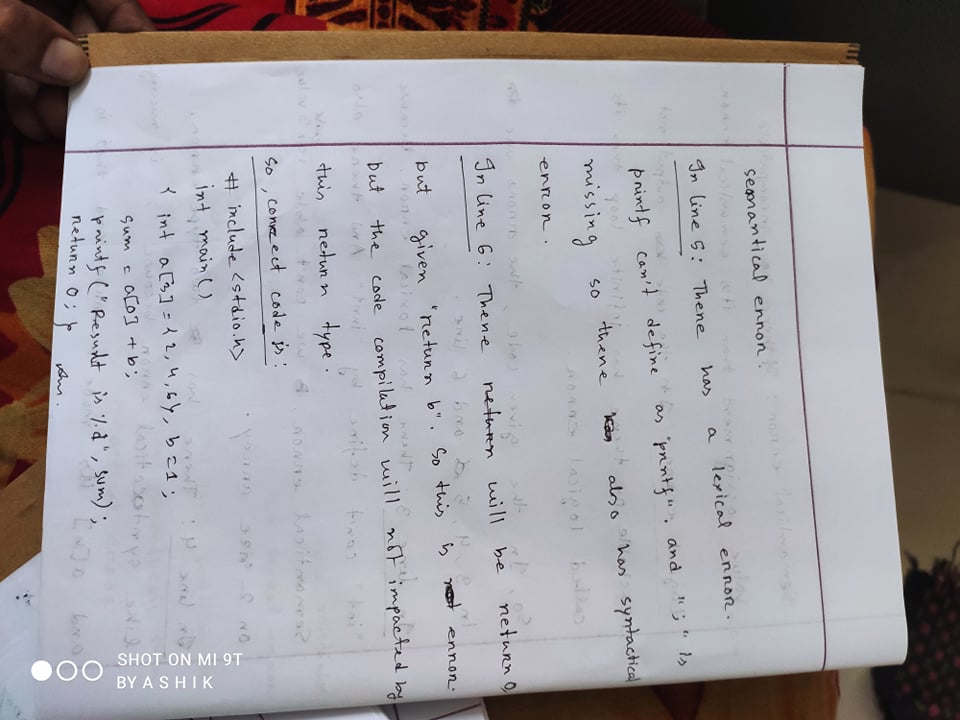 semantical error.
In line 5: There has a lexical error.
printf can't define as "prntf". and ";" is
missing so there also has syntactical
error.
In line 6: There return will be return 0,
but given "return b". So this is not error.
but the code compilation will not impacted by
this return type.
So, correct code is:
# include <stdio.h>
int main()
{ int a[3] = { 2, 4, 6}, b = 1;
sum = a[0] + b;
printf ("Result is %d", sum);
return 0; } Ans.
SHOT ON MI 9T
BY ASHIK